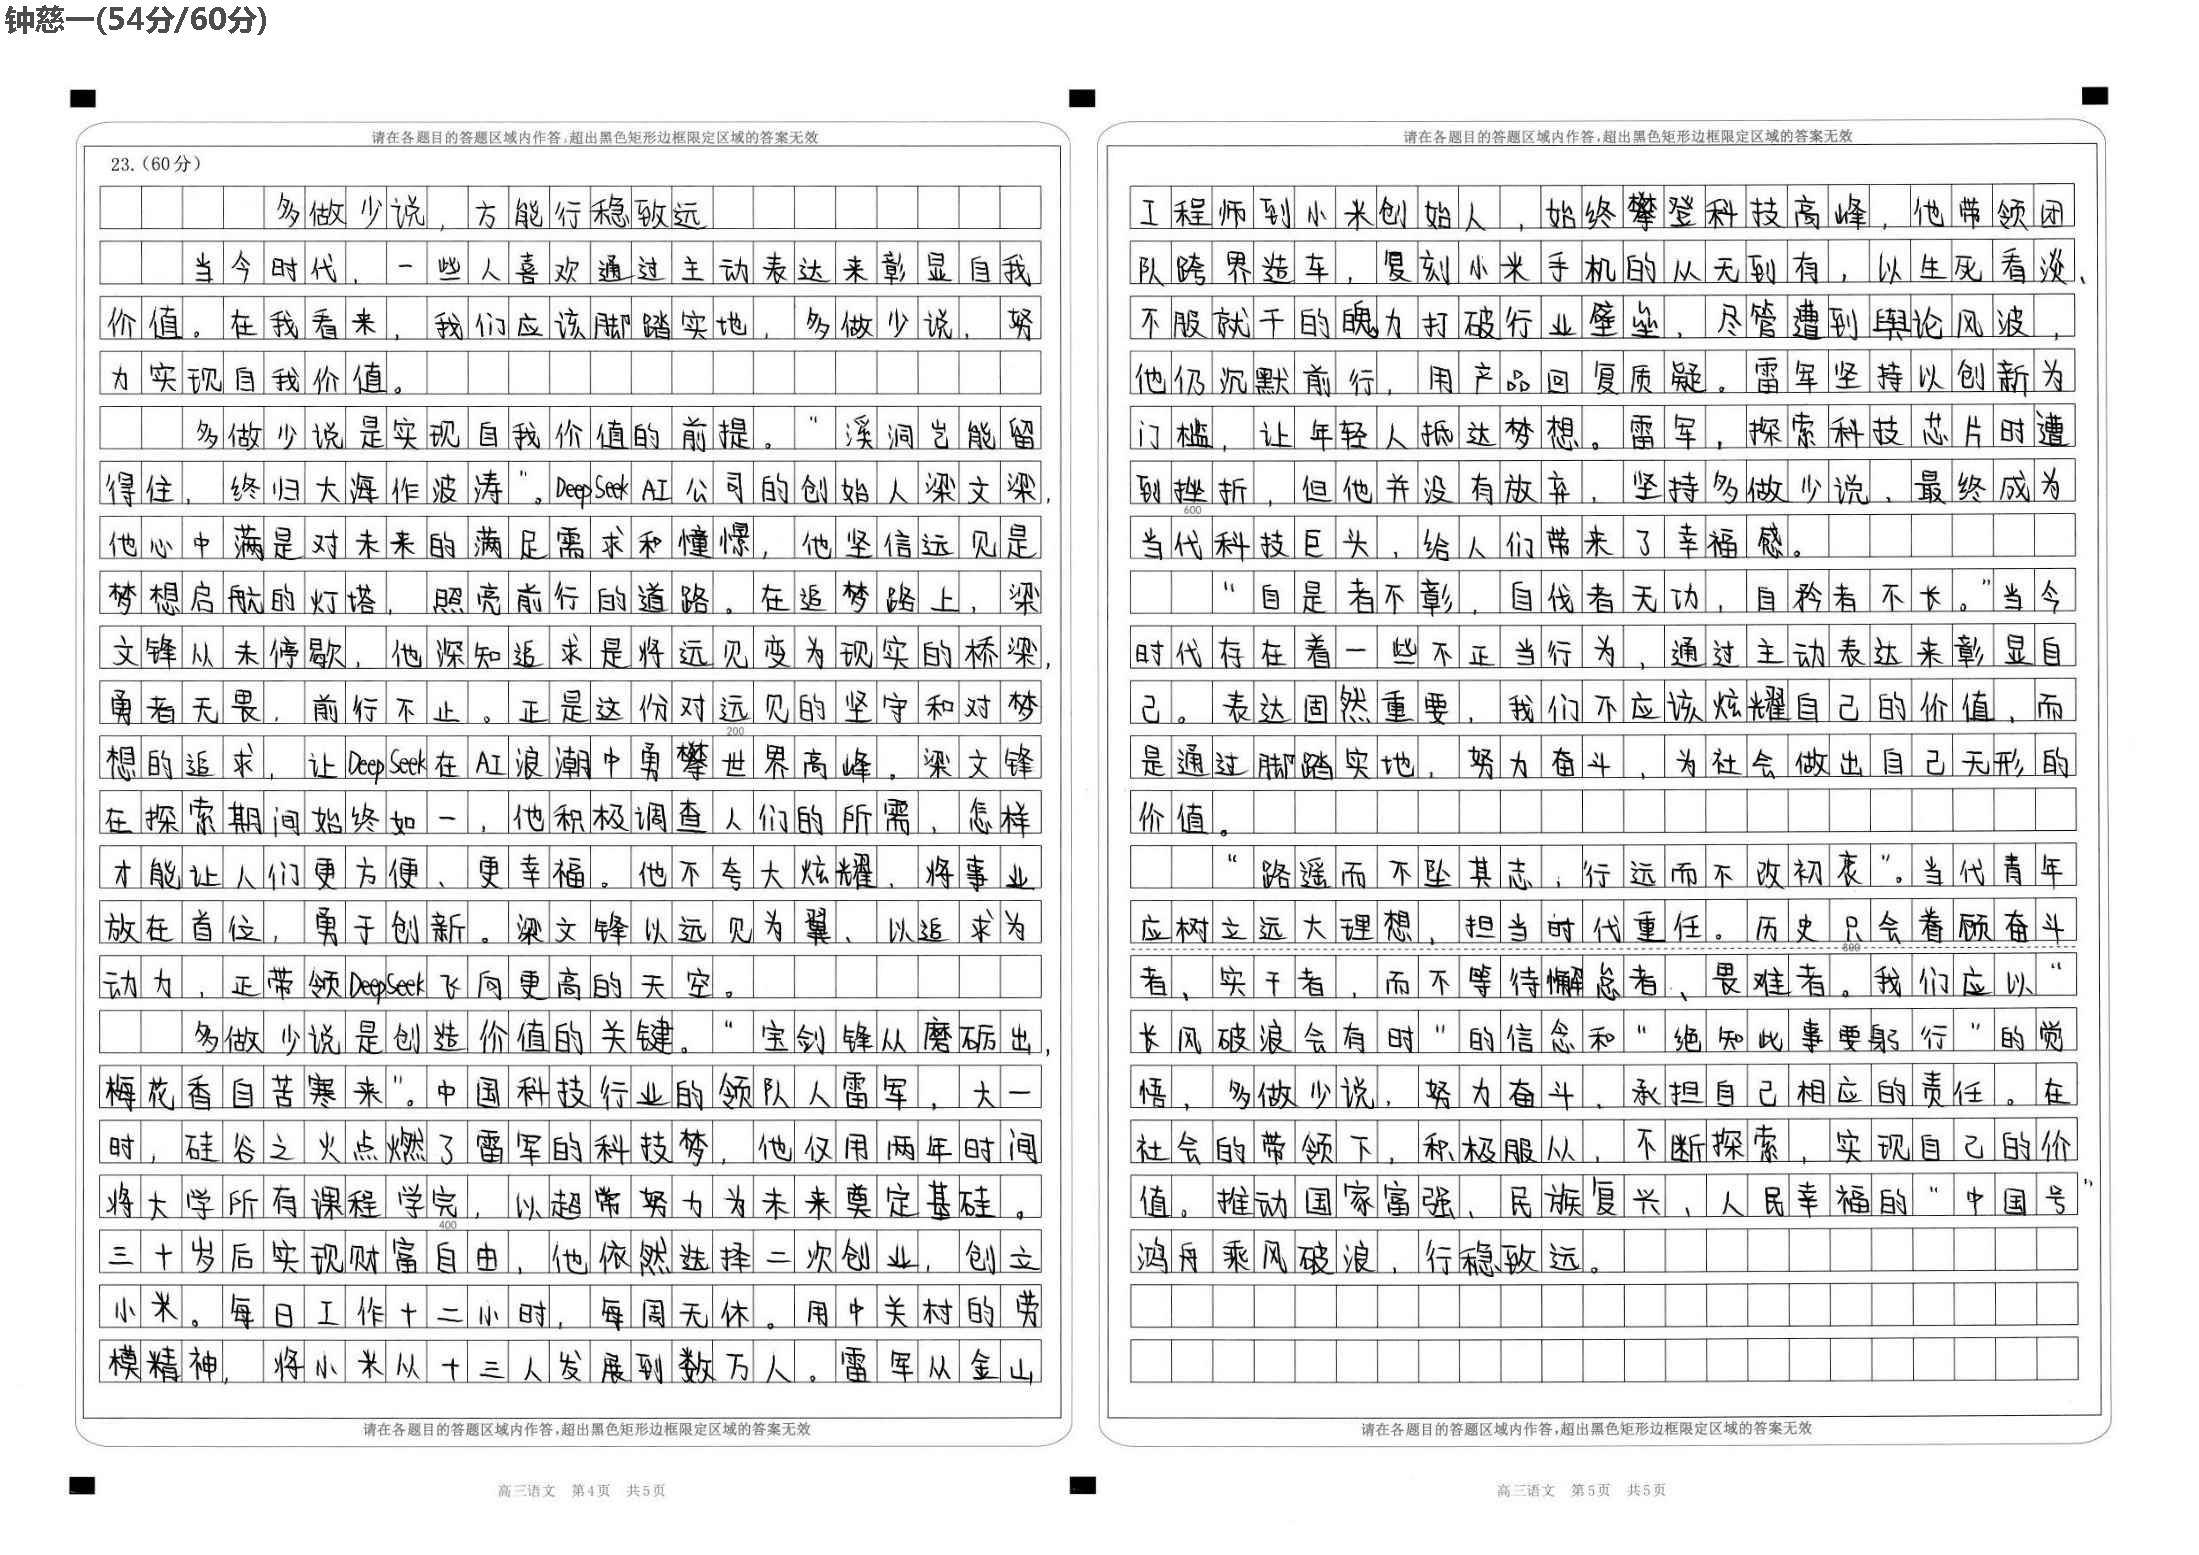 钟慈一(54分/60分)
请在各题目的答题区域内作答,超出黑色矩形边框限定区域的答案无效
23.(60分)
多做少说，方能行稳致远
当今时代，一些人喜欢通过主动表达来彰显自我
价值。在我看来，我们应该脚踏实地，多做少说，努
力实现自我价值。
多做少说是实现自我价值的前提。“溪涧岂能留
得住，终归大海作波涛”。DeepSeek AI公司的创始人梁文梁，
他心中满是对未来的满足需求和憧憬，他坚信远见是
梦想启航的灯塔，照亮前行的道路。在追梦路上，梁
文锋从未停歇，他深知追求是将远见变为现实的桥梁，
勇者无畏，前行不止。正是这份对远见的坚守和对梦
200
想的追求，让DeepSeek在AI浪潮中勇攀世界高峰。梁文锋
在探索期间始终如一，他积极调查人们的所需、怎样
才能让人们更方便、更幸福。他不夸大炫耀，将事业
放在首位，勇于创新。梁文锋以远见为翼、以追求为
动力，正带领DeepSeek飞向更高的天空。
多做少说是创造价值的关键。“宝剑锋从磨砺出，
梅花香自苦寒来”。中国科技行业的领队人雷军，大一
时，硅谷之火点燃了雷军的科技梦，他仅用两年时间
将大学所有课程学完，以超常努力为未来奠定基硅。
400
三十岁后实现财富自由，他依然选择二次创业，创立
小米。每日工作十二小时，每周无休。用中关村的劳
模精神，将小米从十三人发展到数万人。雷军从金山
请在各题目的答题区域内作答,超出黑色矩形边框限定区域的答案无效
高三语文 第4页 共5页
请在各题目的答题区域内作答,超出黑色矩形边框限定区域的答案无效
工程师到小米创始人，始终攀登科技高峰，他带领团
队跨界造车，复刻小米手机的从无到有，以生死看淡、
不服就干的魄力打破行业壁垒，尽管遭到舆论风波，
他仍沉默前行，用产品回复质疑。雷军坚持以创新为
门槛，让年轻人抵达梦想。雷军，探索科技芯片时遭
到挫折，但他并没有放弃，坚持多做少说、最终成为
600
当代科技巨头，给人们带来了幸福感。
“自是者不彰，自伐者无功，自矜者不长。”当今
时代存在着一些不正当行为，通过主动表达来彰显自
己。表达固然重要，我们不应该炫耀自己的价值，而
是通过脚踏实地，努力奋斗，为社会做出自己无形的
价值。
“路遥而不坠其志，行远而不改初衷”。当代青年
应树立远大理想，担当时代重任。历史只会眷顾奋斗
800
者、实干者，而不等待懈怠者、畏难者。我们应以“
长风破浪会有时”的信念和“绝知此事要躬行”的觉
悟，多做少说，努力奋斗，承担自己相应的责任。在
社会的带领下，积极服从，不断探索，实现自己的价
值。推动国家富强、民族复兴、人民幸福的“中国号”
鸿舟乘风破浪，行稳致远。
请在各题目的答题区域内作答,超出黑色矩形边框限定区域的答案无效
高三语文 第5页 共5页